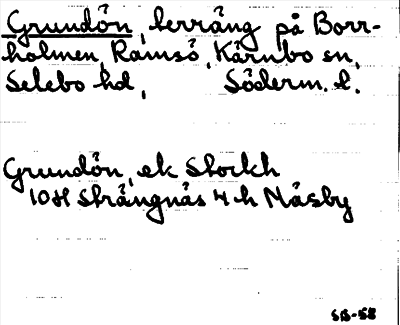 Grundön, terräng på Borr-
holmen, Ramsö, Kärnbo sn,
Selebo hd, Söderm. l.
Grundön, ek Stockh
10H Strängnäs 4 h Mäsby
SB-58